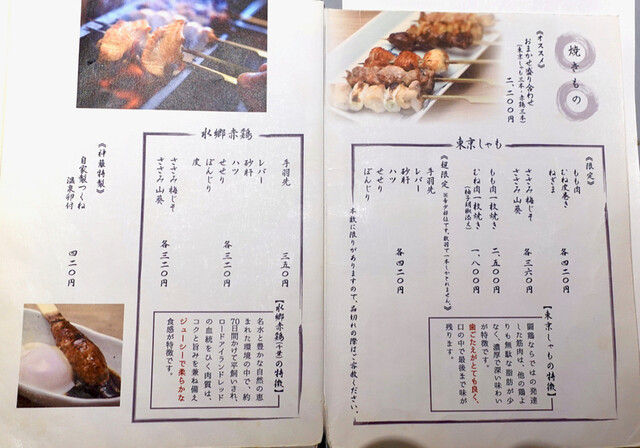 焼きもの
《オススメ》
おまかせ盛り合わせ
(東京しゃも三本・赤鶏三本)
二、二〇〇円
東京しゃも
《限定》
もも肉
むね皮巻き
ねぎま
各 四二〇円
ささみ梅じそ
ささみ山葵
各 三六〇円
もも肉一枚焼き
二、五〇〇円
むね肉一枚焼き
(柚子胡椒添え)
一、八〇〇円
《超限定》
※希少部位です。数羽で一本しかとれません。
手羽先
レバー
砂肝
ハツ
せせり
ぼんじり
各 四二〇円
本数に限りがありますので、品切れの際はご容赦ください。
【東京しゃもの特徴】
闘鶏ならではの発達
した筋肉は、他の鶏よ
りも無駄な脂肪が少
なく、濃厚で深い味わい
が特徴です。
歯ごたえがとても良く、
口の中で最後まで味が
残ります。
水郷赤鶏
手羽先
三五〇円
レバー
砂肝
ハツ
せせり
ぼんじり
各 三二〇円
皮
ささみ梅じそ
ささみ山葵
各 三二〇円
【水郷赤鶏(千葉)の特徴】
名水と豊かな自然の恵
まれた環境の中で、約
70日間かけて平飼いされ、
ロードアイランドレッド
の血統をひく肉質は、
コクと旨みを兼ね備え
ジューシーで柔らかな
食感が特徴です。
自家製つくね
温泉卵付
四二〇円